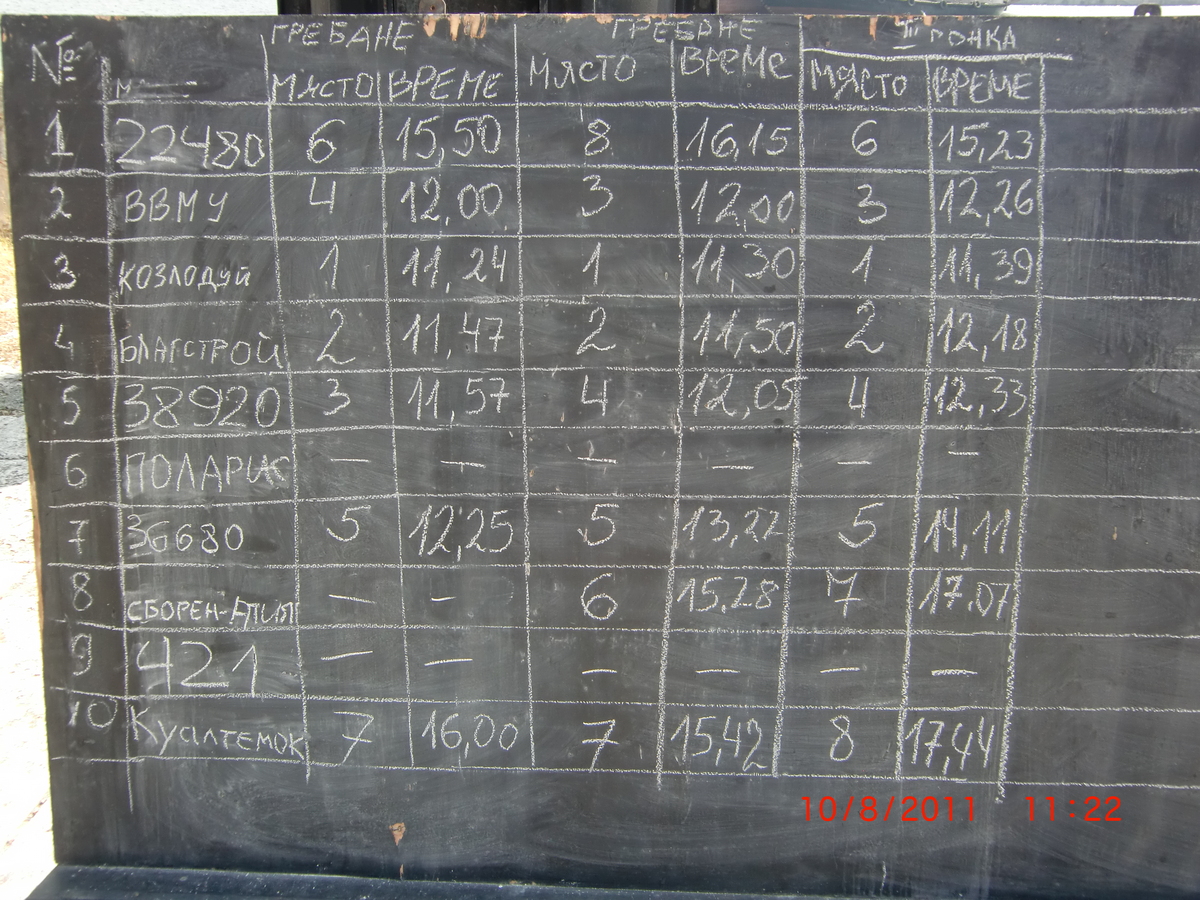 № ГРЕБАНЕ ГРЕБАНЕ III ГОНКА
МЯСТО ВРЕМЕ МЯСТО ВРЕМЕ МЯСТО ВРЕМЕ
1 22480 6 15,50 8 16,15 6 15,23
2 ВВМУ 4 12,00 3 12,00 3 12,26
3 КОЗЛОДУЙ 1 11,24 1 11,30 1 11,39
4 БЛАГСТРОЙ 2 11,47 2 11,50 2 12,18
5 38920 3 11,57 4 12,05 4 12,33
6 ПОЛАРИС — — — — — —
7 36680 5 12,25 5 13,22 5 14,11
8 СБОРЕН- — — 6 15.28 7 17.07
9 421 — — — — — —
10 7 16,00 7 15,42 8 17,44
10/8/2011 11:22